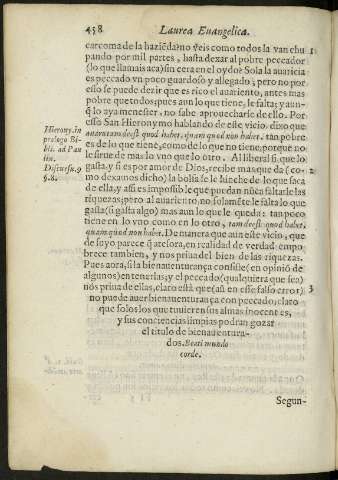 458 Laurea Euangelica.
carcoma de la haziẽda: no veis como todos la van chu
pando por mil partes, hasta dexar al pobre peccador
(lo que llamais aca) sin cera en el oydo? Sola la auaricia
es peccado vn poco guardoso y allegado; pero no por
esso se puede dezir que es rico el auariento, antes mas
pobre que todos; pues aun lo que tiene, le falta; y aun-
q̃ lo aya menester, no sabe aprouecharse de ello. Por
esso San Hieronymo hablando de este vicio, dixo que
auaro tam deest quod habet, quam quod non habet. tan pobre
es de lo que tiene, como de lo que no tiene, porque no
le sirue de mas lo vno que lo otro. Al liberal si que lo
gasta, y si es por amor de Dios, recibe mas que da (co-
mo dexamos dicho) la bolsa se le hinche de lo que saca
de ella, y assi es impossible que puedan nũca faltarle las
riquezas; pero al auariento, no solamẽte le falta lo que
gasta (si gasta algo) mas aun lo que le queda: tan poco
tiene en lo vno como en lo otro, tam deest quod habet,
quam quod non habet. De manera que aun este vicio, que
de suyo parece q̃ atesora, en realidad de verdad empo
brece tambien, y nos priua del bien de las riquezas.
Pues aora, si la bienauenturança consiste (en opinió de
algunos) en tenerlas; y el peccado (qualquiera que sea)
nos priua de ellas, claro està que (aũ en esse falso error)
no puede auer bienauenturança con peccado, claro
que solos los que tuuieren sus almas inocentes,
y sus conciencias limpias podran gozar
el titulo de bienauentura-
dos. Beati mundo
corde.
Hierony. in
prologo Bi-
bli. ad Pau
lin.
Discursu. 9
§. 8.
1
2
3
Segun-